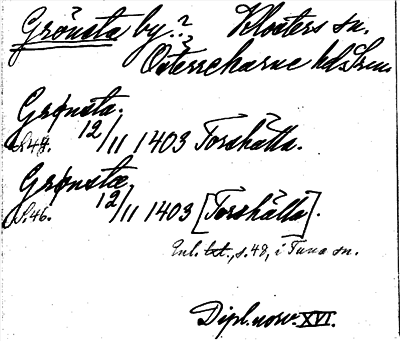 Grönsta by? Klosters sn.
Österrekarne hd. Srm.
Grønsta.
S.48. 12/11 1403 Torshälla.
Grønstæ,
S.46. 12/11 1403 [Torshälla].
Enl. txt., s.48, i Tuna sn.
Dipl. norv. XVI.